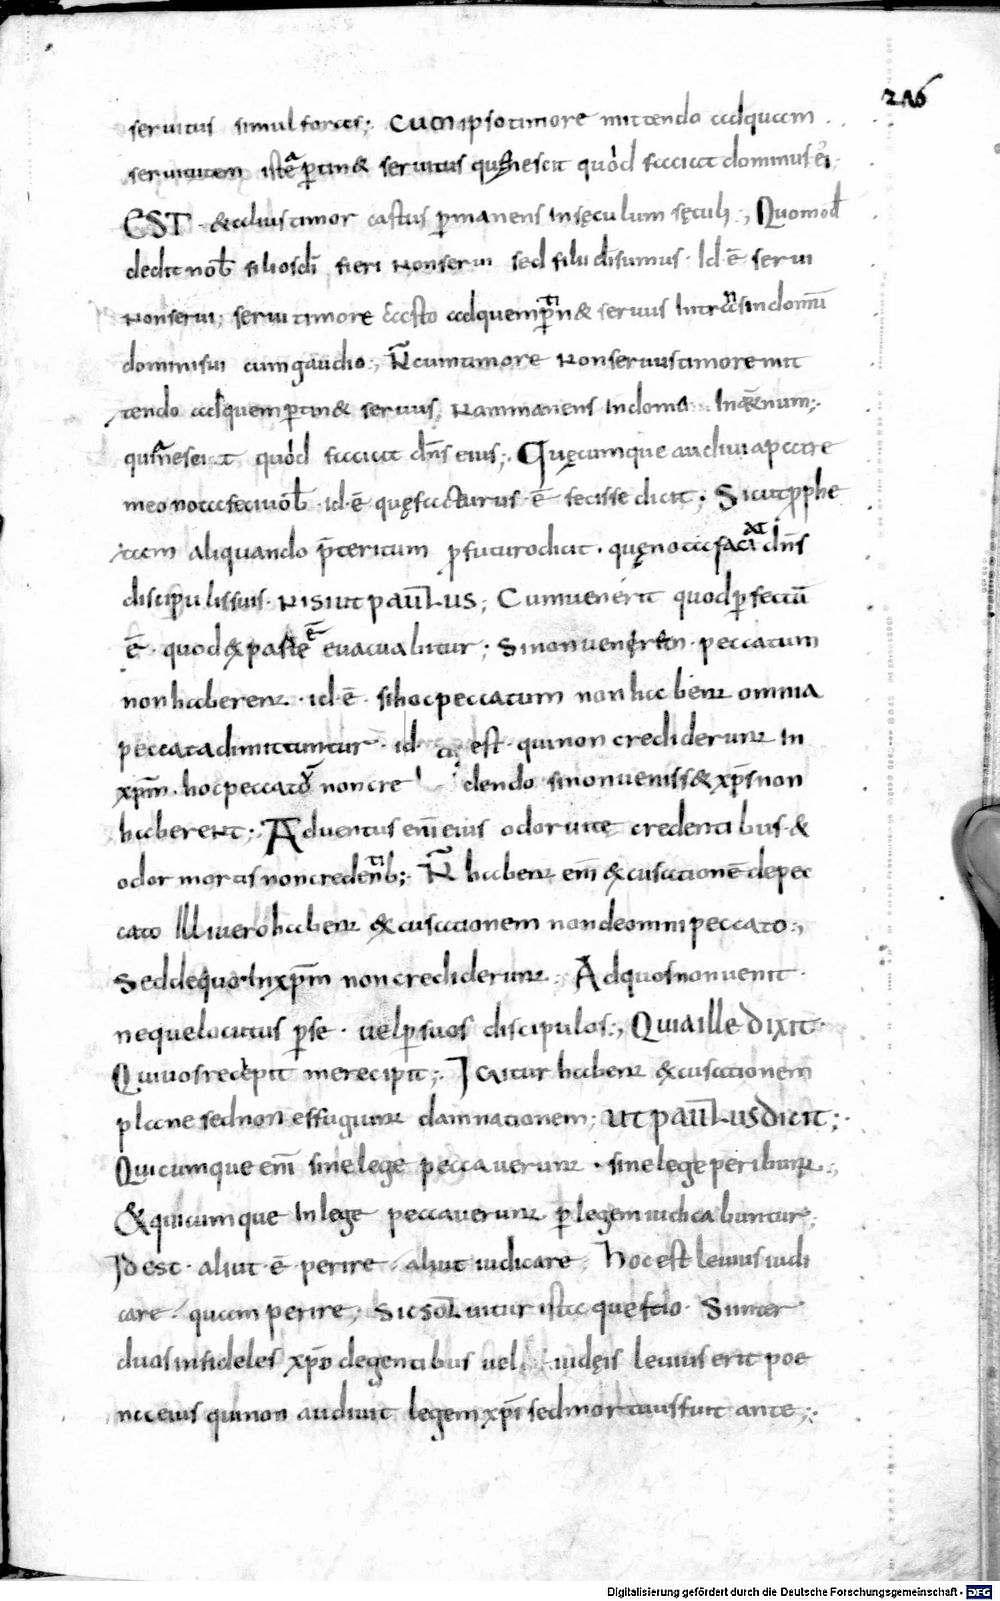 216
seruitus simul foras;. Cum ipso timore mittendo ad quam
seruitutem iste ptin& seruitus qui nescit quod faciat dominus ei;
EST & alius timor castus pmanens In sęculum sęculi;, Quomod
dedit nob filios di fieri Non serui sed filii di sumus. Id ē serui
Non serui; serui timore casto ad quem ptin& seruus Intrans in domū
domini sui cum gaudio;, N cum timore Non seruus timore mit
tendo ad quem ptin& seruus, Nam manens In domo In aeternum;.
quia nesci t quod faciat dns eius;. Quęcumque audiui a patre
meo nota feci uob. id ē quę facturus ē fecisse dicit. Sicut pphe
tam aliquando pteritum p futuro dicit. quę nota faciat dns
discipulis suis. Nisi ut paulus; Cum uenerit quod pfectū
ē. quod ex parte ē euacuabitur; Si non uenirem. peccatum
non haberent. id ē. si hoc peccatum non habent omnia
peccata dimittuntur. id est. qui non crediderunt In
xpm. hoc peccato non cre dendo si non ueniss& xps non
haberent;. Aduentus eni eius odor uitę credentibus. &
odor mortis non credentib;. N habent eni excusationē de pec
cato Illi uero habent excusationem non de omni peccato;,
Sed de quo. In xpm non crediderunt. Ad quos non uenit.
neque locutus p se. uel p suos discipulos;, Quia ille dixit.
Qui uos recepit me recipit;. Igitur habent excusationem
plane sed non effugiunt damnationem; ut paulus dicit;.
Quicumque eni sine lege peccauerunt. sine lege peribunt;
& quicumque In lege peccauerunt. p legem iudicabuntur;
Id est. aliut. ē. perire. aliut iudicare. Hoc est leuius iudi
care. quam perire; Sic soluitur ista questio. Si inter
duos infideles xpo degentibus uel iudęis leuius erit poe
na eius qui non audiuit legem xpi sed mortuus fuit ante;.
Digitalisierung gefördert durch die Deutsche Forschungsgemeinschaft - DFG